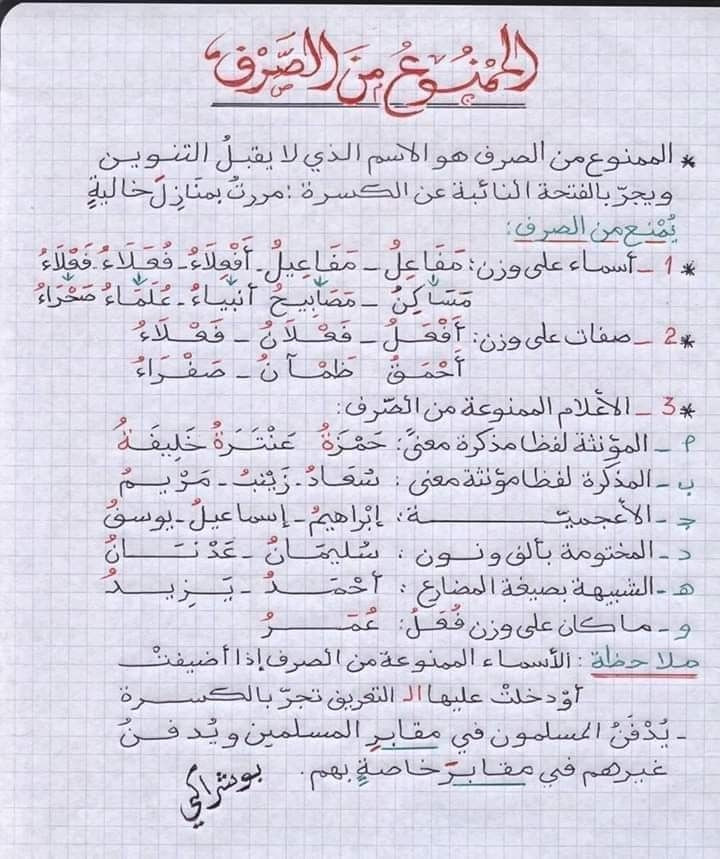 الممْنُوعُ مِنَ الصَّرْفِ
* الممنوع من الصرف هو الاسم الذي لا يقبلُ التنوين
ويجرّ بالفتحة النائبة عن الكسرة : مررتُ بمنَازِلَ خاليةٍ
يُمْنع من الصرف :
* 1 _ أسماء على وزن : مَفَاعِلُ _ مَفَاعِيلُ _ أَفْعِلَاءُ _ فُعَلَاءُ فَعْلَاءُ
مَسَاكِنُ _ مَصَابِيحُ أنبياءُ _ عُلَمَاءُ صَحْرَاءُ
* 2 _ صفات على وزن : أَفْعَلُ _ فَعْلَانُ _ فَعْلَاءُ
أَحْمَقُ ظَمْآنُ _ صَفْرَاءُ
* 3 _ الأعْلام الممنوعة من الصّرف :
م _ المؤنثة لفظا مذكرة معنىً : حَمْزَةُ عَنْتَرَةُ خَلِيفَةُ
ب _ المذكرة لفظا مؤنثة معنى : سُعَادُ _ زَيْنبُ _ مَرْيمُ
ج _ الأعجميّة : إبْراهيمُ _ إسماعيلُ _ يوسفُ
د _ المختومة بألف ونون : سُليمَانُ _ عَدْنَانُ
هـ _ الشبيهة بصيغة المضارع : أحْمَدُ _ يَزِيدُ
و _ ما كان على وزن فُعَلُ : عُمَرُ
ملاحظة : الأسماء الممنوعة من الصرف إذا أضيفتْ
أوْ دخلتْ عليها الـ التعريف تجرّ بالكسرة
_ يُدْفَنُ المسلمون في مقابرِ المسلمين ويُدفنُ
غيرهم في مقابرَ خاصةٍ بهم .
بوشراكي